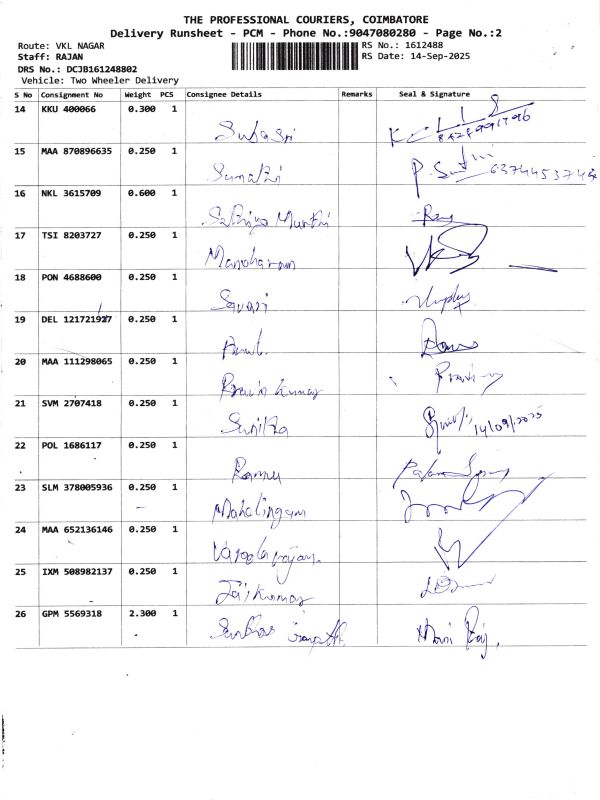 THE PROFESSIONAL COURIERS, COIMBATORE
Delivery Runsheet - PCM - Phone No.:9047080280 - Page No.:2
Route: VKL NAGAR RS No.: 1612488
Staff: RAJAN RS Date: 14-Sep-2025
DRS No.: DCJB161248802
Vehicle: Two Wheeler Delivery
S No Consignment No Weight PCS Consignee Details Remarks Seal & Signature
14 KKU 400066 0.300 1 Subasri
15 MAA 870896635 0.250 1 Sumathi
16 NKL 3615709 0.600 1 Sathiya Murthi
17 TSI 8203727 0.250 1 Manoharan
18 PON 4688600 0.250 1
19 DEL 121721927 0.250 1
20 MAA 111298065 0.250 1 Pravin Kumar
21 SVM 2707418 0.250 1 Sunitha 14/09/2025
22 POL 1686117 0.250 1 Ramu
23 SLM 378005936 0.250 1 Mahalingam
24 MAA 652136146 0.250 1 Varadarajan
25 IXM 508982137 0.250 1 Jaikumar
26 GPM 5569318 2.300 1 Hari Raj